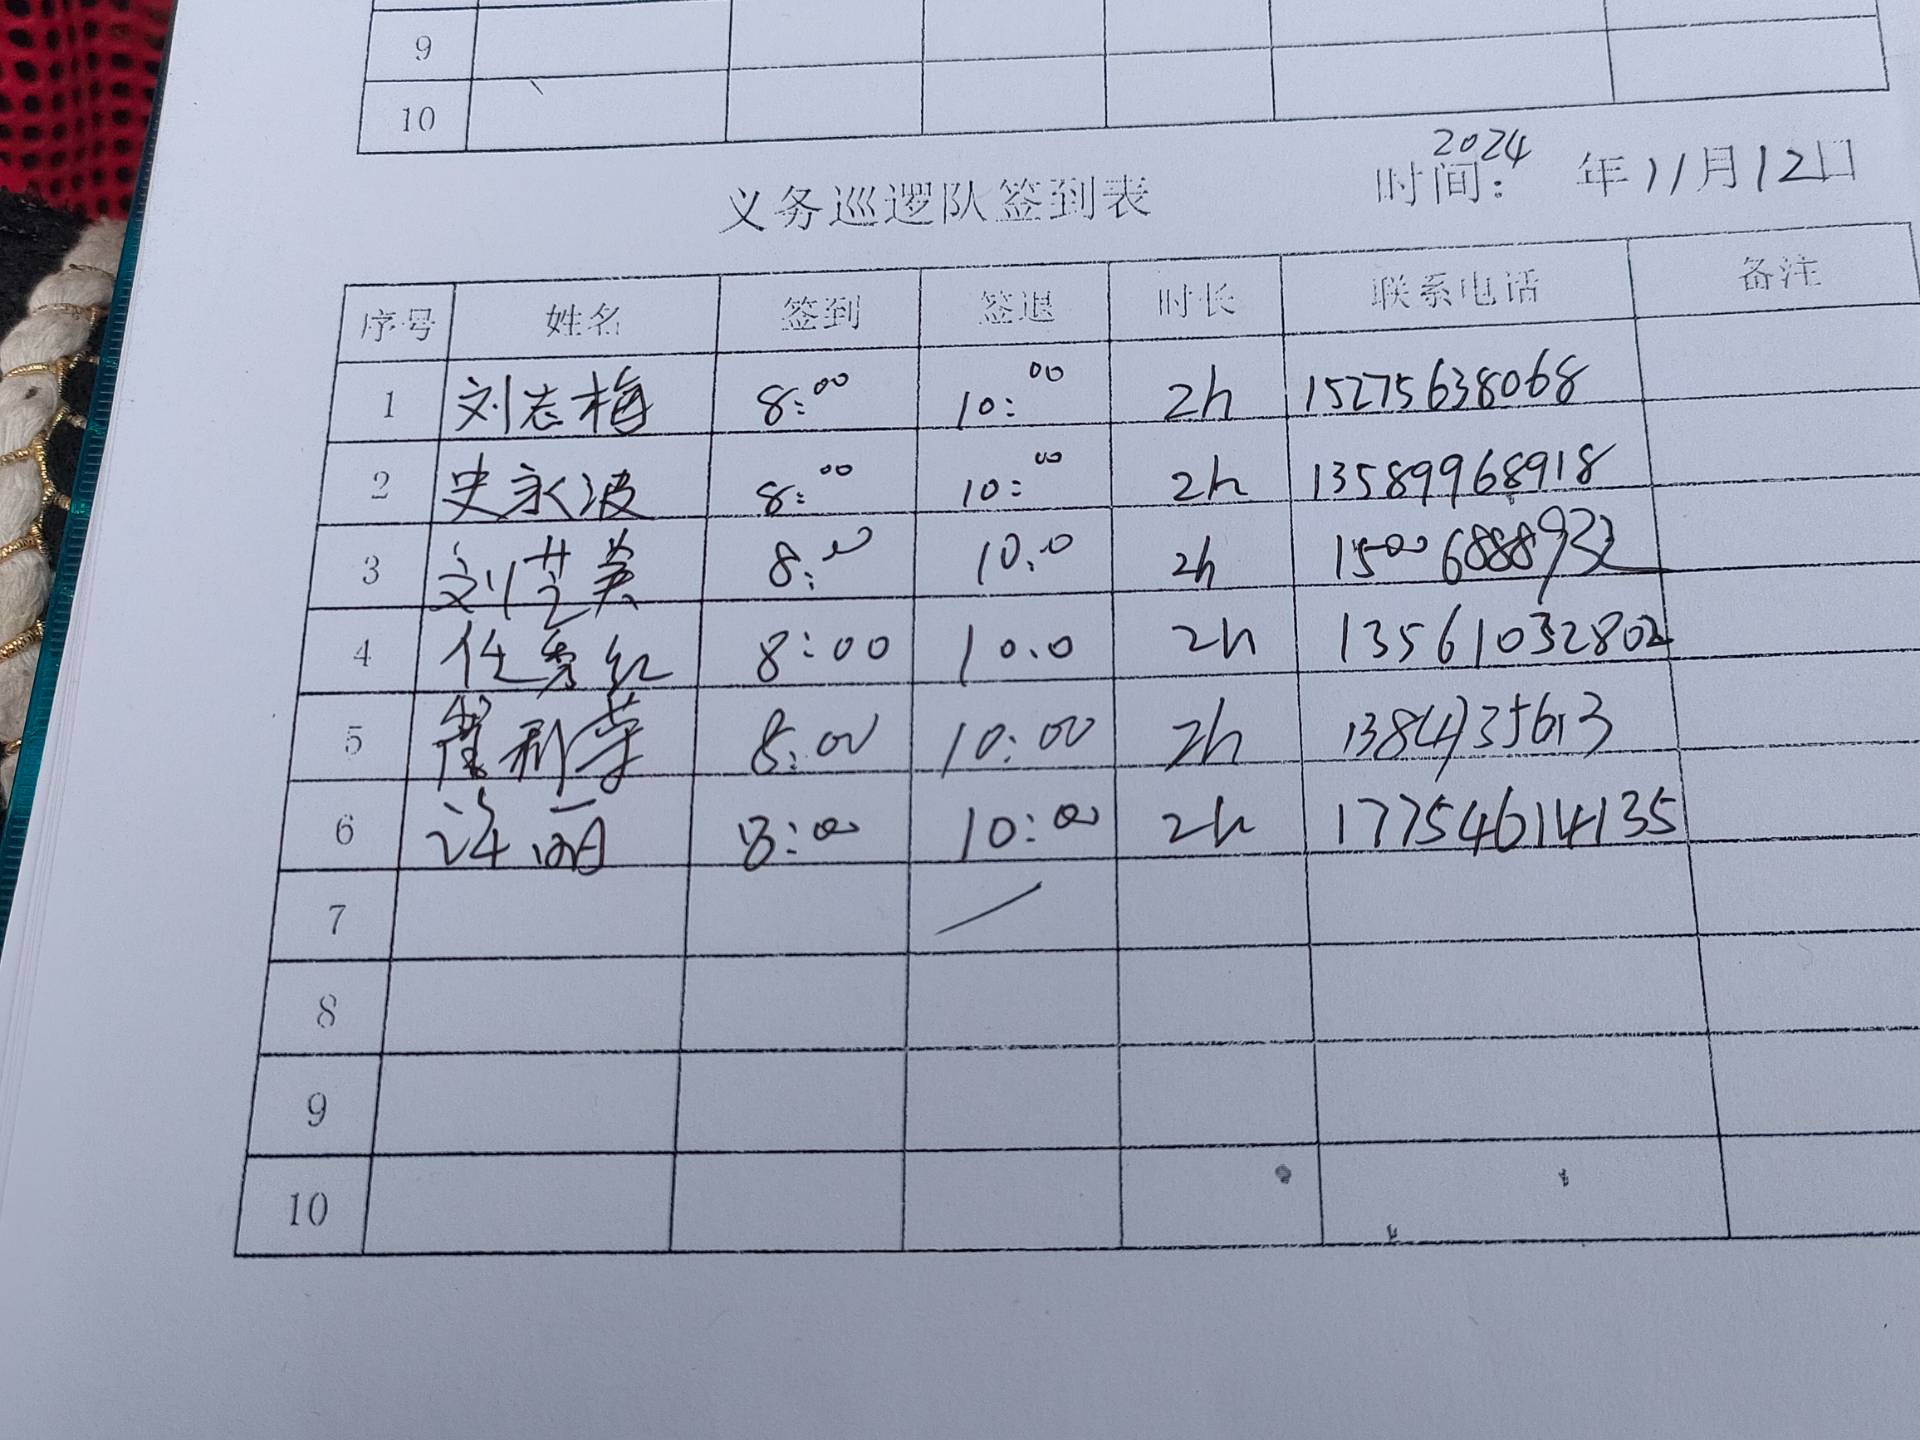 9
10
义务巡逻队签到表 时间: 2024年11月12日
序号 姓名 签到 签退 时长 联系电话 备注
1 刘志梅 8:00 10:00 2h 15275638068
2 史永波 8:00 10:00 2h 13589968918
3 刘艺美 8:00 10:0 2h 15006888932
4 任秀红 8:00 10.0 2h 13561032802
5 崔利荣 8:00 10:00 2h
6 许丽 8:00 10:00 2h 17754614135
7
8
9
10